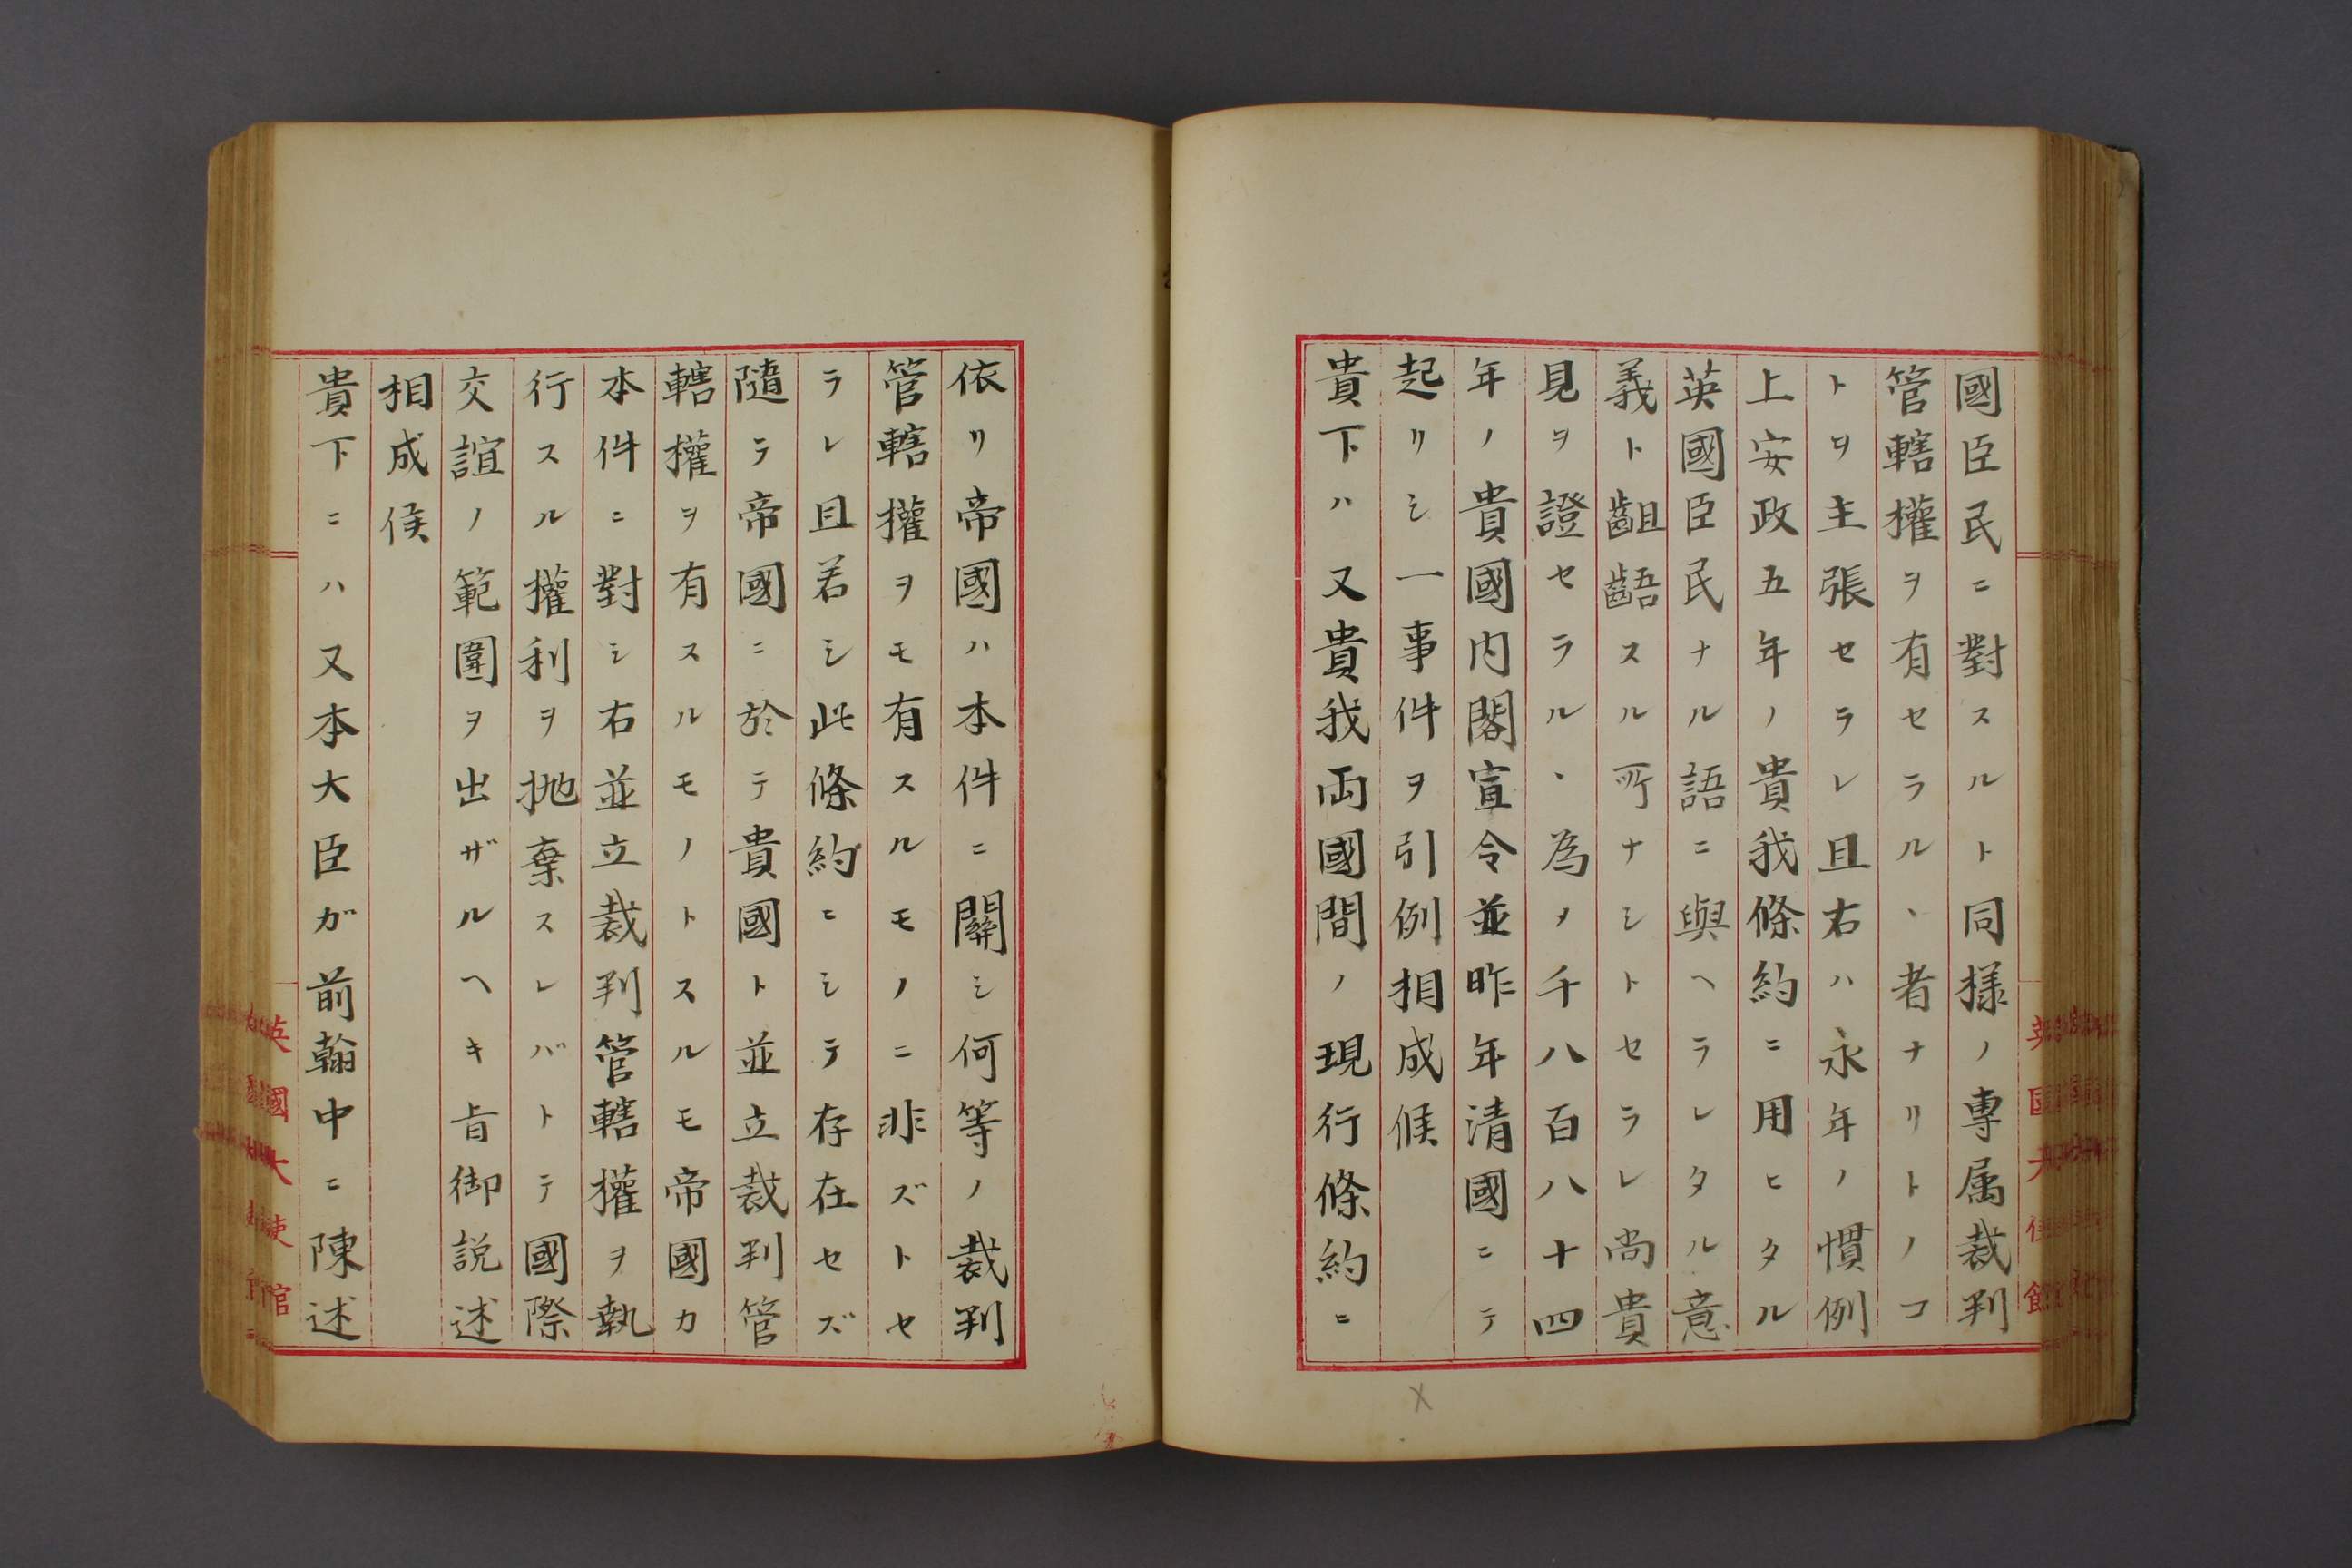 國臣民ニ對スルト同様ノ專属裁判
管轄權ヲ有セラルヽ者ナリトノコ
トヲ主張セラレ且右ハ永年ノ慣例
上安政五年ノ貴我條約ニ用ヒタル
英國臣民ナル語ニ與ヘラレタル意
義ト齟齬スル所ナシトセラレ尚貴
見ヲ證セラルヽ為メ千八百八十四
年ノ貴國内閣宣令並昨年清國ニテ
起リシ一事件ヲ引例相成候
貴下ハ又貴我両國間ノ現行條約ニ
依リ帝國ハ本件ニ關シ何等ノ裁判
管轄權ヲモ有スルモノニ非ズトセ
ラレ且若シ此條約ニシテ存在セズ
隨テ帝國ニ於テ貴國ト並立裁判管
轄權ヲ有スルモノトスルモ帝國カ
本件ニ對シ右並立裁判管轄權ヲ執
行スル權利ヲ抛棄スレバトテ國際
交誼ノ範圍ヲ出ザルヘキ旨御説述
相成候
貴下ニハ又本大臣ガ前翰中ニ陳述
英國大使館